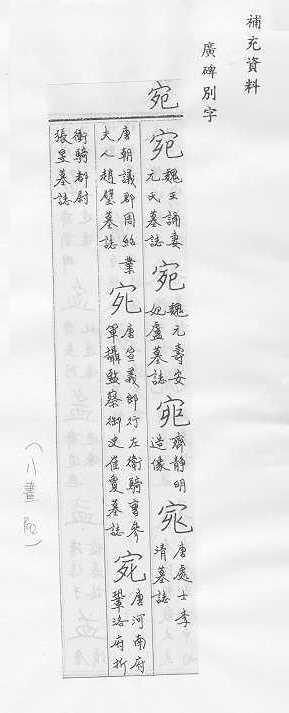 補充資料
廣碑別字
宛
宛 魏王誦妻元氏墓誌 宛 魏元壽安妃盧墓誌 宛 齊静明造像 宛 唐處士李清墓誌
唐朝議郡周紹業夫人趙璧墓誌 宛 唐宣義郎行左衛騎曹參軍攝監察御史崔夐墓誌 宛 唐河南府鞏洛府折
衝騎都尉張昱墓誌